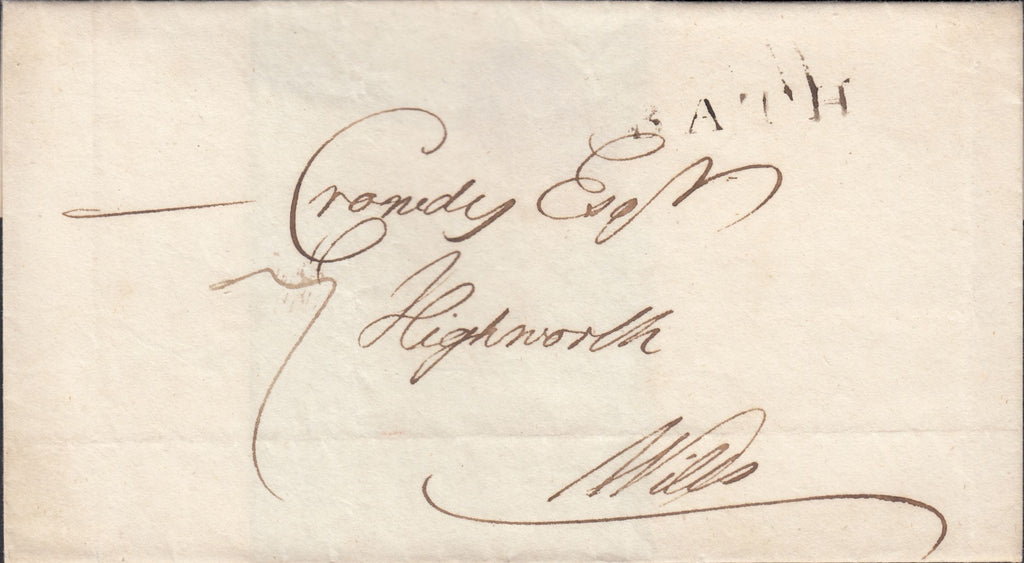 BATH
— Crowdy Esqr
7
Highworth
Wilts